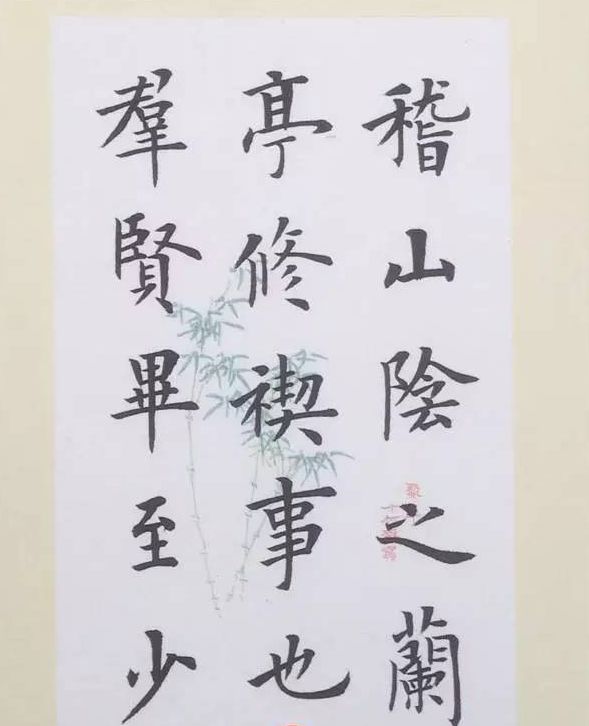 稽山陰之蘭
亭修禊事也
羣賢畢至少